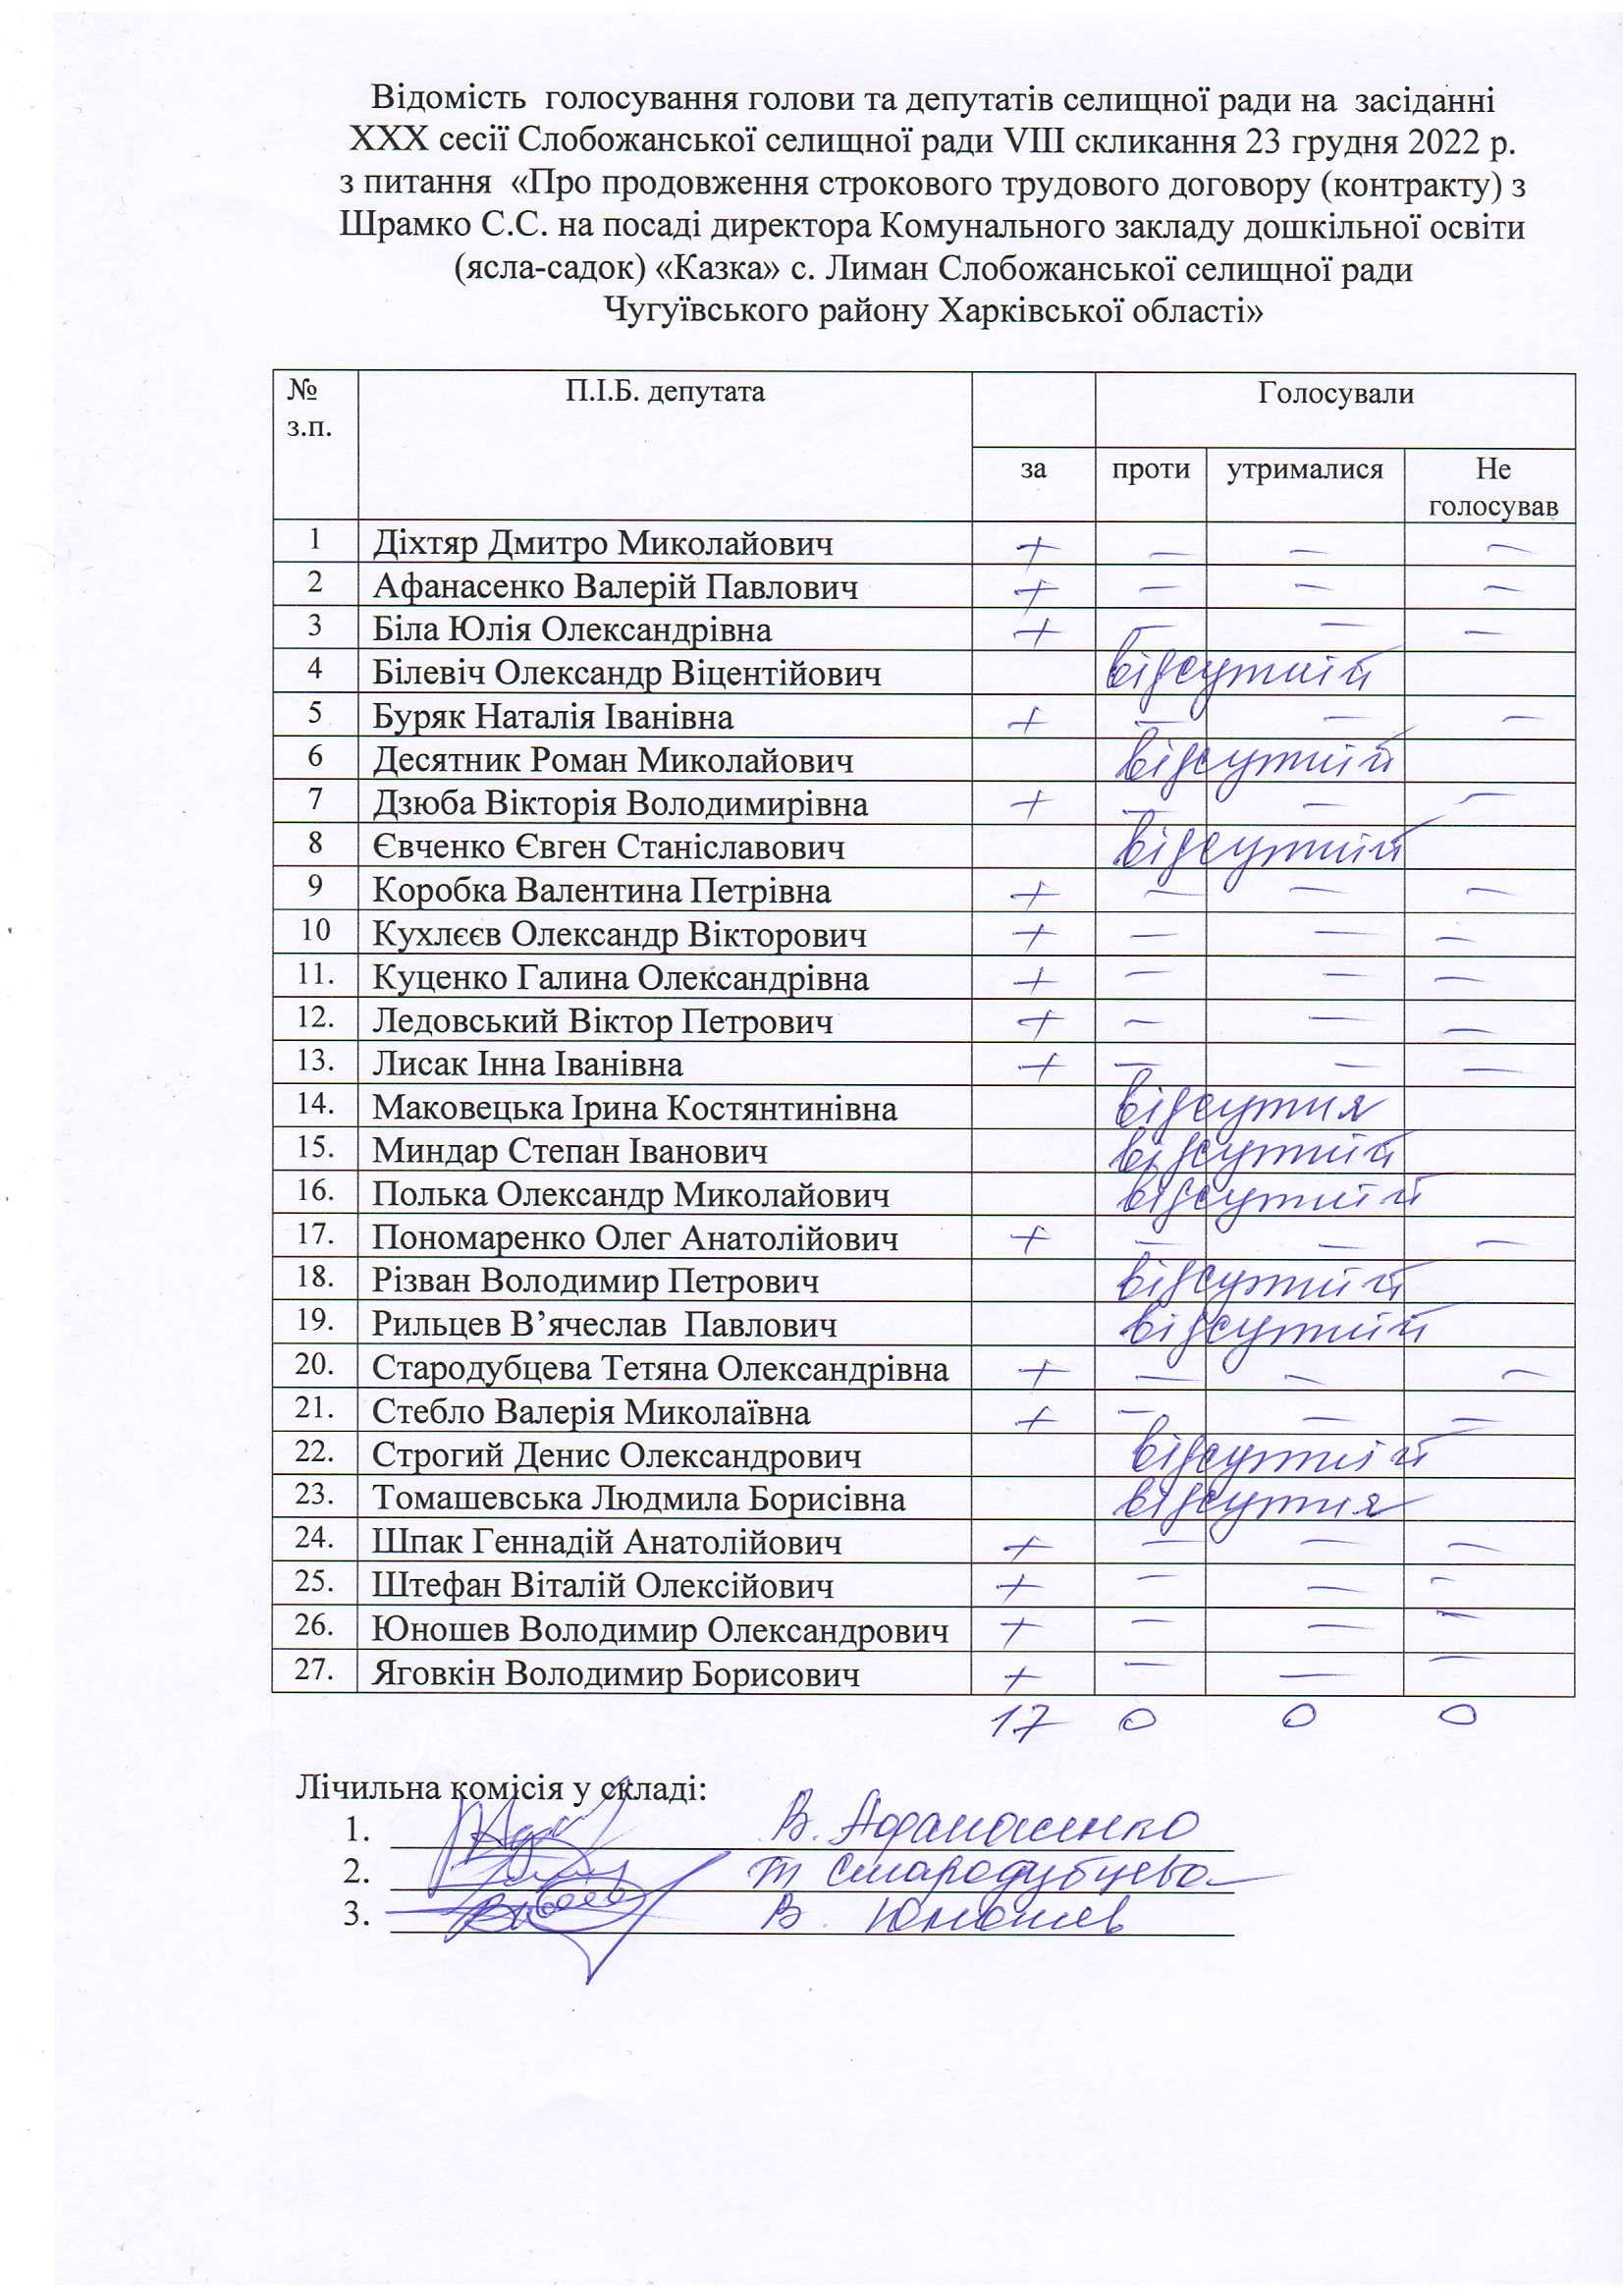 Відомість голосування голови та депутатів селищної ради на засіданні
ХХХ сесії Слобожанської селищної ради VIII скликання 23 грудня 2022 р.
з питання «Про продовження строкового трудового договору (контракту) з
Шрамко С.С. на посаді директора Комунального закладу дошкільної освіти
(ясла-садок) «Казка» с. Лиман Слобожанської селищної ради
Чугуївського району Харківської області»
№ з.п. П.І.Б. депутата Голосували
за проти утрималися Не голосував
1 Діхтяр Дмитро Миколайович + – – –
2 Афанасенко Валерій Павлович + – – –
3 Біла Юлія Олександрівна + – – –
4 Білевіч Олександр Віцентійович відсутній
5 Буряк Наталія Іванівна + – – –
6 Десятник Роман Миколайович відсутній
7 Дзюба Вікторія Володимирівна + – – –
8 Євченко Євген Станіславович відсутній
9 Коробка Валентина Петрівна + – – –
10 Кухлєєв Олександр Вікторович + – – –
11. Куценко Галина Олександрівна + – – –
12. Ледовський Віктор Петрович + – – –
13. Лисак Інна Іванівна + – – –
14. Маковецька Ірина Костянтинівна відсутня
15. Миндар Степан Іванович відсутній
16. Полька Олександр Миколайович відсутній
17. Пономаренко Олег Анатолійович + – – –
18. Різван Володимир Петрович відсутній
19. Рильцев В’ячеслав Павлович відсутній
20. Стародубцева Тетяна Олександрівна + – – –
21. Стебло Валерія Миколаївна + – – –
22. Строгий Денис Олександрович відсутній
23. Томашевська Людмила Борисівна відсутня
24. Шпак Геннадій Анатолійович + – – –
25. Штефан Віталій Олексійович + – – –
26. Юношев Володимир Олександрович + – – –
27. Яговкін Володимир Борисович + – – –
17 0 0 0
Лічильна комісія у складі:
1. В. Афанасенко
2. Т Стародубцева
3. В. Юношев